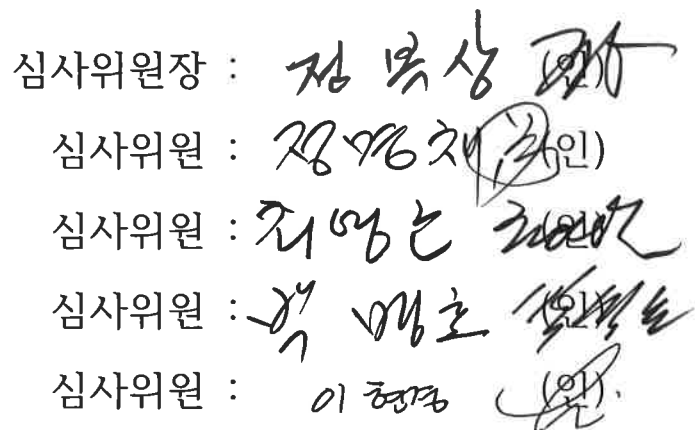 심사위원장 : 정복상 (인)
심사위원 : 정명채 (인)
심사위원 : 최명는 (인)
심사위원 : 백명호 (인)
심사위원 : 이현경 (인)